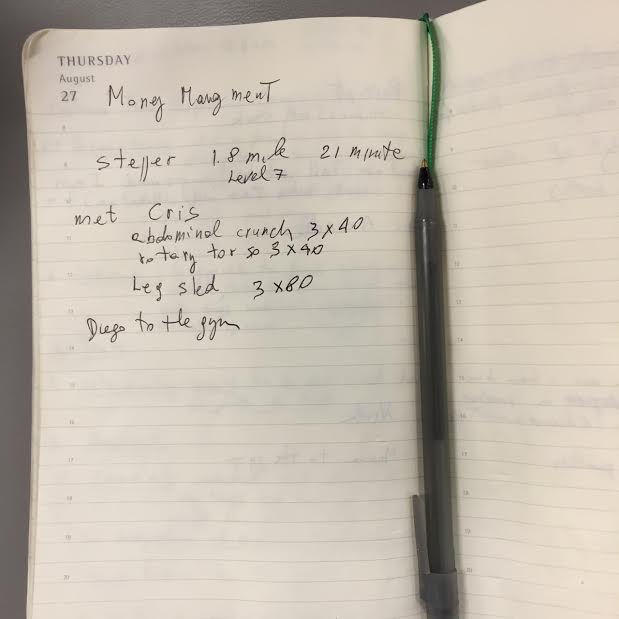 THURSDAY
August
27 Money Mangment
stepper 1.8 mile 21 minute
Level 7
met Cris
abdominal crunch 3x40
rotary torso 3x40
Leg sled 3x80
Diego to the gym
8
9
10
11
12
13
14
15
16
17
18
19
20